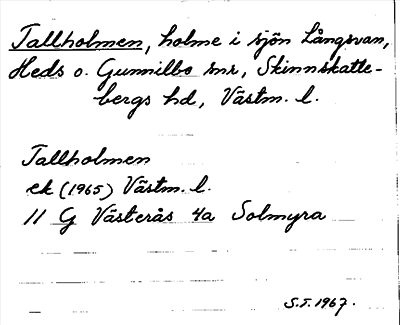 Tallholmen, holme i sjön Långsvan,
Heds o. Gunnilbo snr, Skinnskatte-
bergs hd, Västm. l.
Tallholmen
ek (1965) Västm. l.
11 G Västerås 4a Solmyra
S.T. 1967.